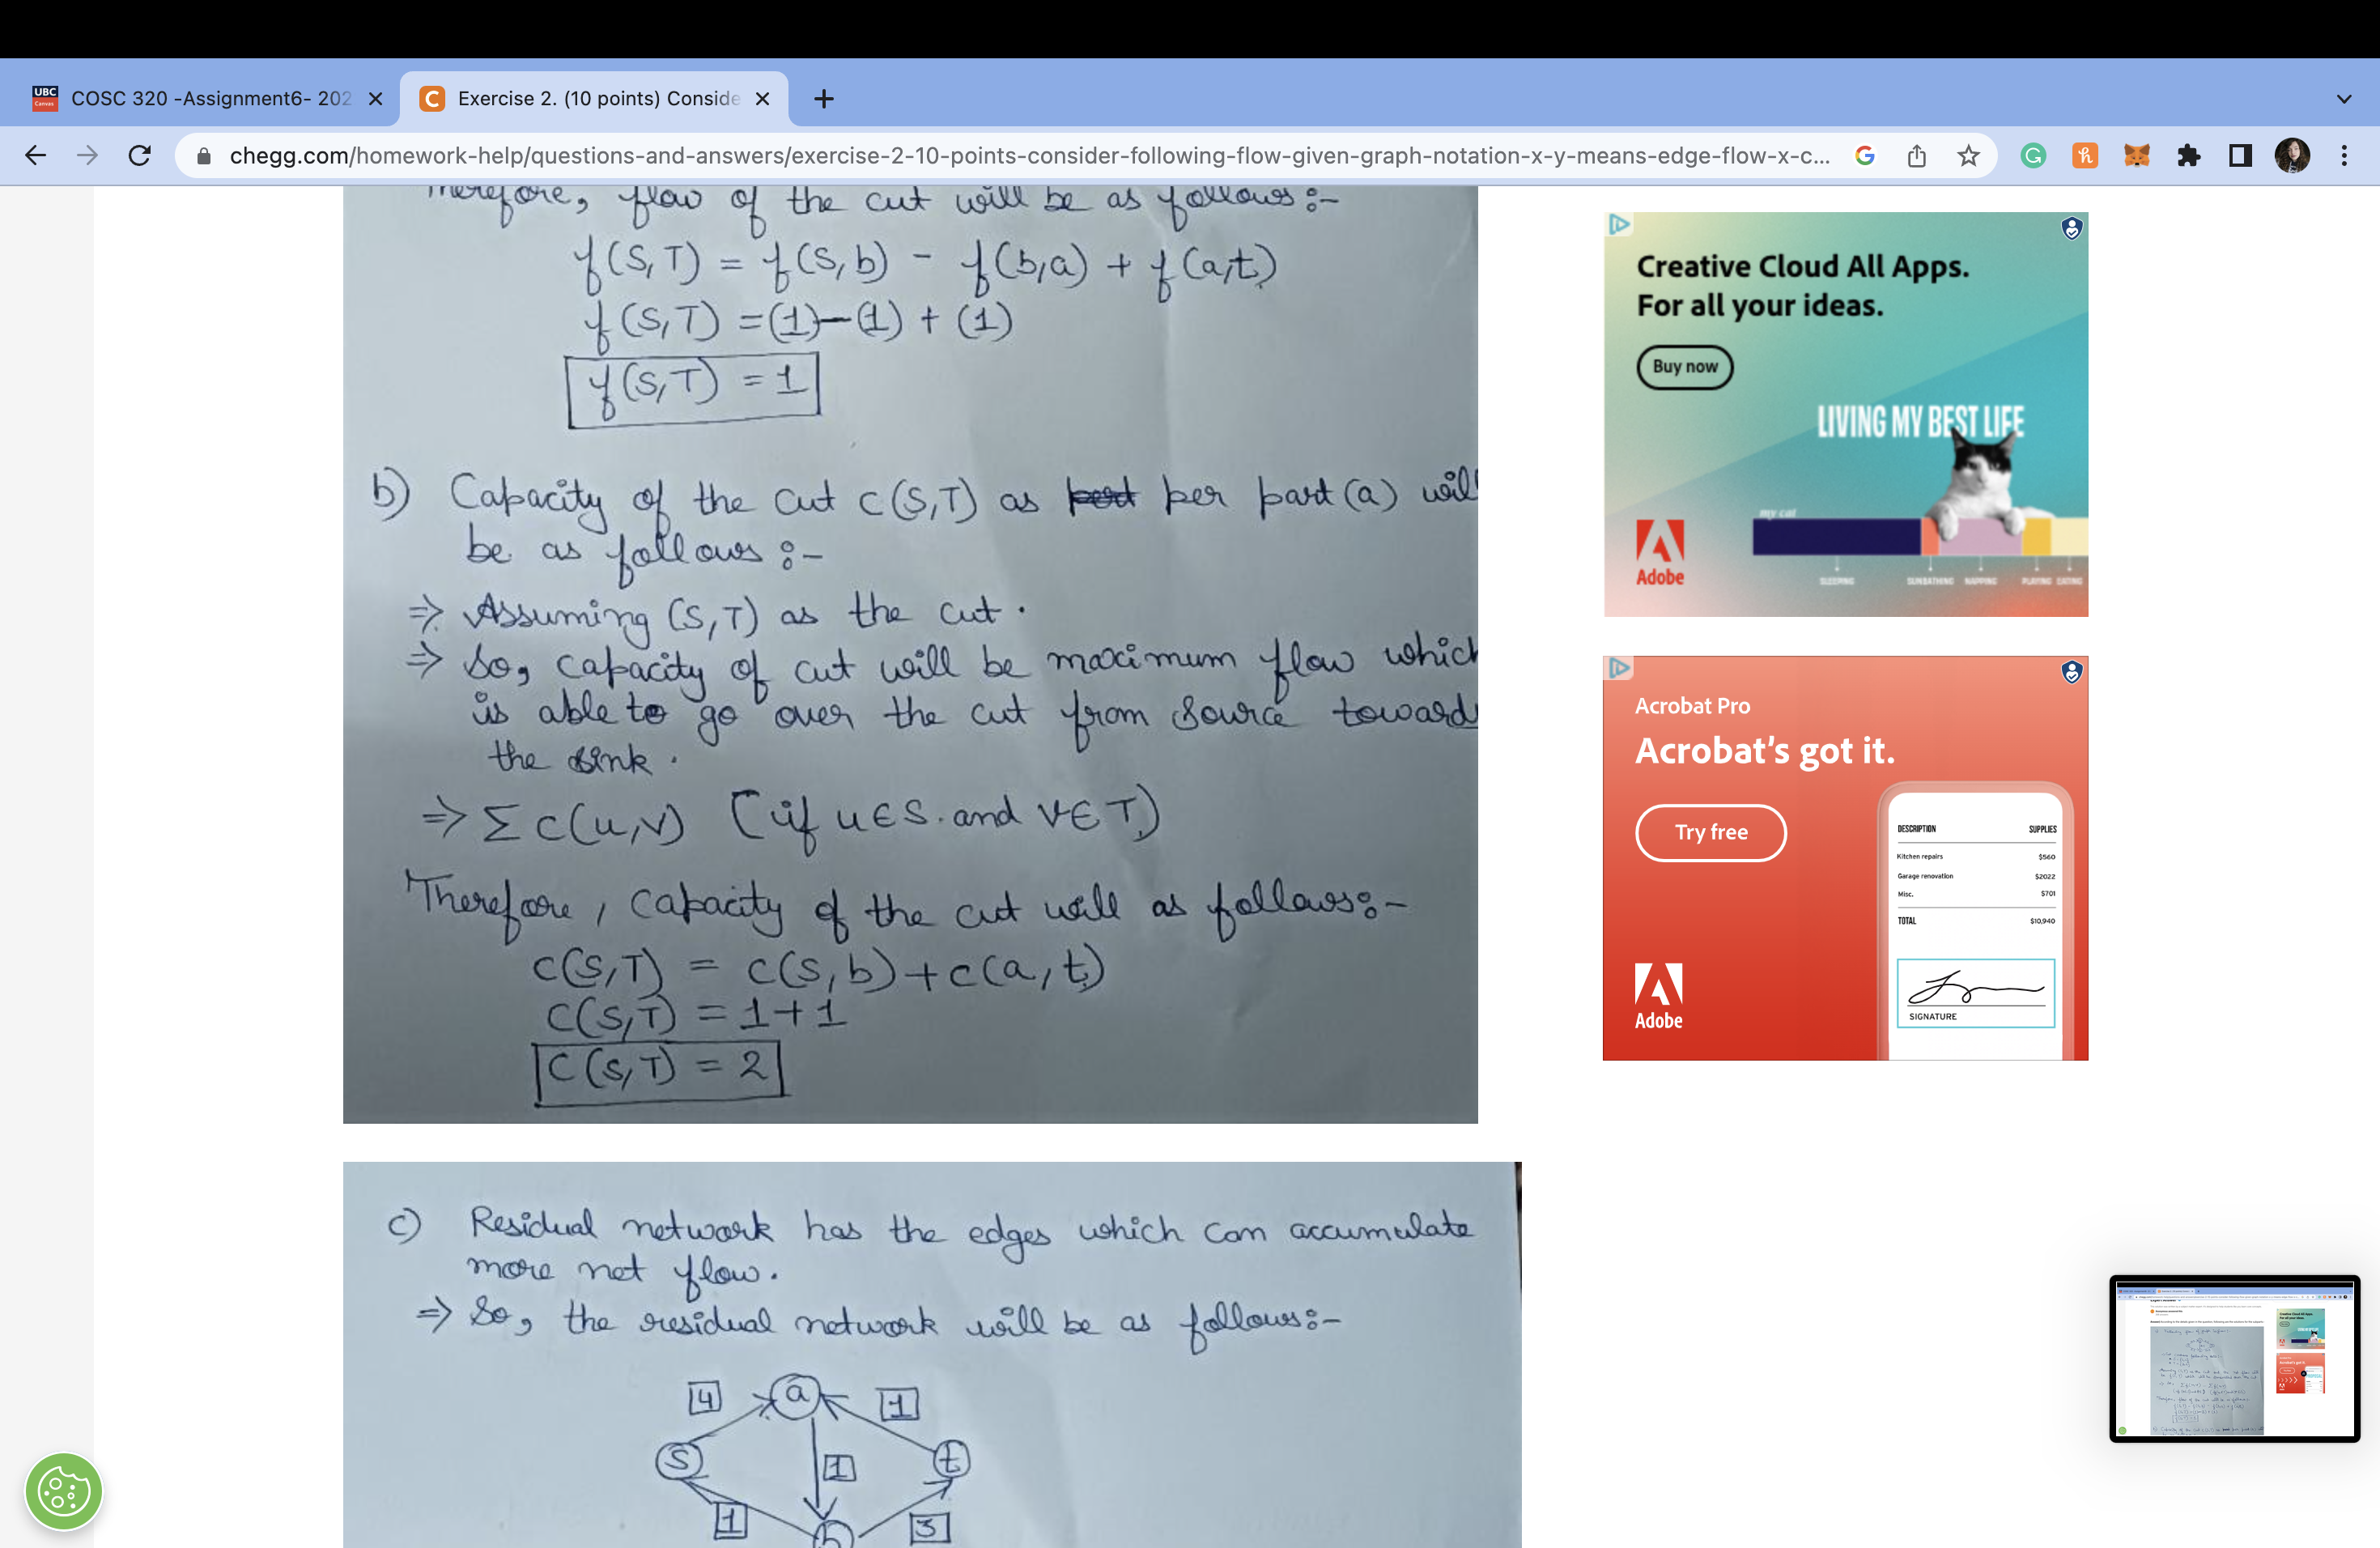 COSC 320 -Assignment6- 202
Exercise 2. (10 points) Conside
chegg.com/homework-help/questions-and-answers/exercise-2-10-points-consider-following-flow-given-graph-notation-x-y-means-edge-flow-x-c...
Therefore, flow of the cut will be as follows :-
f(S,T) = f(S,b) - f(b,a) + f(a,t)
f(S,T) = (1) - (1) + (1)
f(S,T) = 1
b) Capacity of the cut c(S,T) as per part (a) will
be as follows :-
⇒ Assuming (S,T) as the cut.
⇒ So, capacity of cut will be maximum flow which
is able to go over the cut from source towards
the sink.
⇒ Σ c(u,v) [if u ∈ S. and v ∈ T)
Therefore, capacity of the cut will as follows :-
c(S,T) = c(s,b) + c(a,t)
c(S,T) = 1+1
c(S,T) = 2
c) Residual network has the edges which can accumulate
more net flow.
⇒ So, the residual network will be as follows :-
4 a 1
S 1 t
1 b 3
Creative Cloud All Apps.
For all your ideas.
Buy now
LIVING MY BEST LIFE
my cat
SLEEPING SUNBATHING NAPPING PLAYING EATING
Adobe
Acrobat Pro
Acrobat's got it.
Try free
DESCRIPTION SUPPLIES
Kitchen repairs $560
Garage renovation $2022
Misc. $701
TOTAL $10,940
SIGNATURE
Adobe